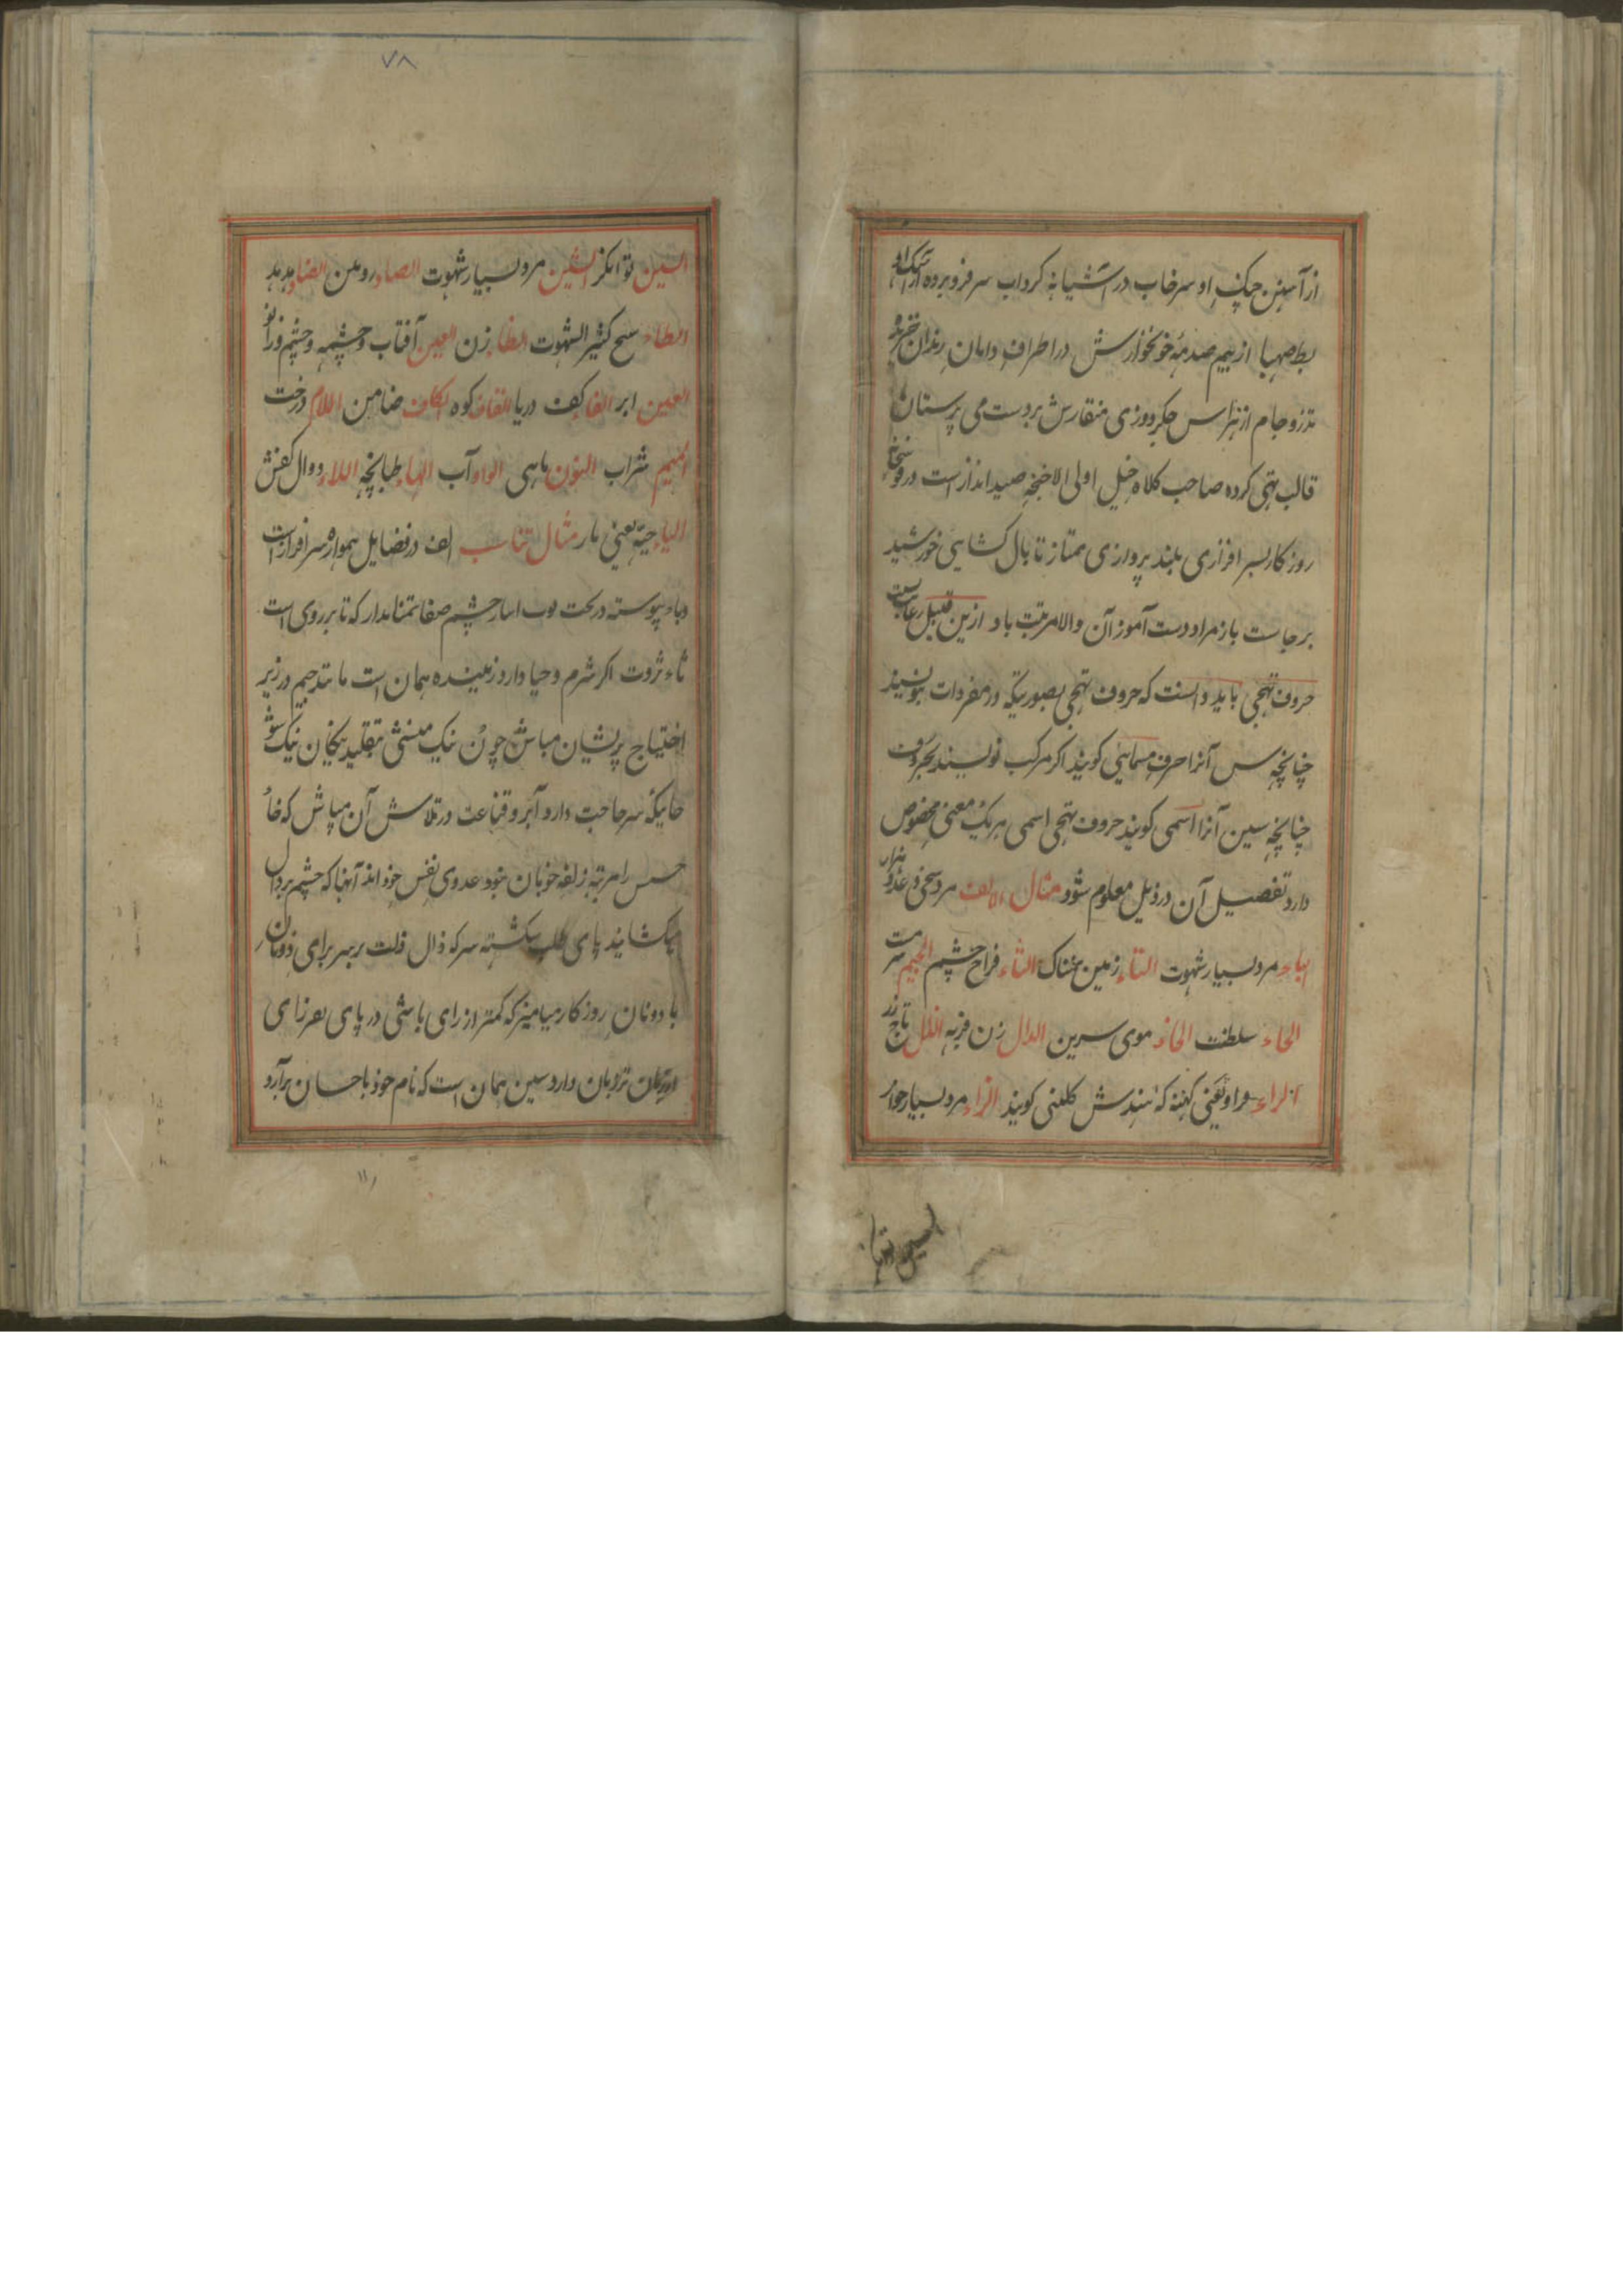 از آهنین چنکِ او سرخاب در آشیانهٔ کرداب سر فرو برده
بط صهبا از بیم صدمهٔ خونخوارش در اطرافِ دامانِ رندان
تذرو جام از هراس جکردوزی منقارش بر دست می پرستان
قالب تهی کرده صاحب کلاه خیل اولی الاجنحه صید انداز است در
روزکار بسر افرازی بلند پروازی ممتاز تا بال کشایئ خورشید
بر جاست باز مراد دست آموز آن والا مرتبت باد ازین قبیل
حروف تهجی باید دانست که حروف تهجی بصوریکه در مفردات نویسند
چنانچه س آنرا حرف مسمائی کویند اکر مرکب نویسند بحروف
چنانچه سین آنرا اسمی کویند حروف تهجی اسمی هر یک معنی مخصوص
دارد تفصیل آن در ذیل معلوم شود مثال الالف مرد سخی و عدد هزار
الباء مرد بسیار شهوت التاء زمین نمناک الثاء فراخ چشم الجیم سرمست
الحاء سلطنت الخاء موی سرین الدال زن فربه الذال تاج
الراء یعنی کهنه که هندش کلغنی کویند الزاء مرد بسیار خوار
السین توانکر
۷۸
السین توانکر الشین مرد بسیار شهوت الصاد روهن الضاد هدهد
الطاء کثیر الشهوت الظاء زن العین آفتاب و چشمه و چشم و زانو
الغین ابر الفاء کف دریا القاف کوه الکاف ضامن اللام درخت
المیم شراب النون ماهی الواو آب الهاء طبانچه اللاء دوال کفش
الیاء حیّه یعنی مار مثال تناسب الف در فضایل همواره سر افراز است
و باء پیوسته در تحت چشم صفا تمنا مدار که تا بر روی است
ثاء ثروت اکر شرم و حیا دارد زیبنده همان است مانند جیم در زیر
احتیاج پریشان مباش چون نیک منشی بتقلید نیکان نیک شو
حائیکه سر حاجت دارد آبرو قناعت در تلاش آن مپاش که خاء
حسن را مرتبه زلفه خوبان نبود عدوی نفس خود اند آنها که چشم بر دال
میکشایند پای طلب شکسته سر که ذال ذلت بر سر برای دونان
با دونانِ روزکار میامیز که کمتر از رای باشی در پای
نردبان دارد سین همان است که نام خود باحسان برآرد
۱۱